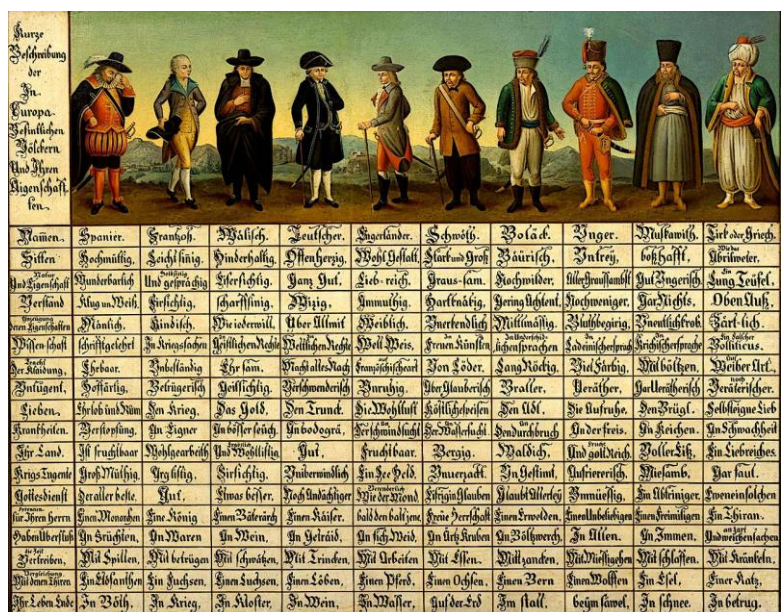 Kurze
Beschreibung
der
In
Europa
Befintlichen
Völckern
Und Ihren
Aigenschaff
ten.
Namen. Spanier. Frantzoß. Wälisch. Teutscher. Engerländer. Schwöth. Boläck. Unger. Muskawith. Tirk oder Griech.
Sitten Hochmüttig, Leicht sinig. Hinderhaltig. Offenherzig. Wohl Gestalt, Stark und Groß Bäurisch, Untrey, boßhafft, Abrilweter.
Und Eigenschaft Wunderbarlich Und gesprächig Eifersichtig. Ganz Gut, Lieb-reich. Graus-sam, Hochwilder, Aller Graussambst Gut Ungerisch, Lung Teüfel.
Verstand Klug un Weiß, Firsichtig, scharffsinig, Wizig, Ammuthig, Hartknäbig, Gering Achtent, Nochweniger, Gar Nichts, Oben Auß,
deren Eigenschaften Mänlich, Kindisch, Wie iederwill, Über Allmit Weiblich, Unerkendlich Mittlmässig, Bluthbegirig, Unentlichkrob, Zärt-lich.
Wissenschaft schrifftgelehrt In Kriegssachen Geistlichen Rechte Weltlichen Rechte Welt Weis, Freuen Künsten lichensprachen Ladeinischersprach Krichischersprache Boliticus.
Der Klaidung, Ehrbaar, Unbeständig Ehrsam, Macht alles Nach Französischeart Von Löder, Lang Röckig, Viel Färbig, Mit böltzen, Weiber Art,
Untugent, Hoffärtig, Betrügerisch Geillsichtig, Verschwenderisch Unruhig, Über Glauberisch Braller, Veräther, Gar Verätherisch Verräterischer,
Lieben, Ehrlob und Rüm Den Krieg, Das Gold, Den Trunck, Die Wohllust Köstlichespeisen Den Adl, Die Aufruhe, Den Brügl, Selbsteigne Lieb
Kranckheiten, Verstopfung, An Eigner An bösser seüch, An bodogrä, Der schwindsucht Der Wassersucht, Den durchbruch An der freis, An Keichen, An Schwachheit
Ihr Land, Ist fruchtbaar Wohlgearbeith Und Wohllistig Gut, Fruchtbaar, Bergig, Waldich, Und goll Reich, Voller Eiß, Ein Liebreiches
Krigs Tugente Groß Müthig, Arglistig, Firsichtig, Uniberwindlich Ein See Held, Unverzackt, Un Gestimt, Aufriererisch, Miesamb, Gar faul,
Gottesdienst Der aller beste, Gut, Etwas besser, Noch Andächtiger Wie der Mond, Eifrig in Glauben Glaubt Allerley Unmüessig, Ein Abtriniger, Eweneinsolchen
für Ihren Herrn Einen Monarchen Eine König Einen Bäterärch Einen Käiser, bald den balt jene, Freüe Herrschaft Einen Erwelden, Einen Unbeliebigen Einen Freimälligen Ein Thiran,
Haben Uberfluß An Früchten, An Waren An Wein, An Getraid, An fich Weid, An Ärtz Kruben An Böltzwerch, In Allen, An Immen, Und weichen sachen
Vertreiben, Mit Spillen, Mit betrügen Mit schwätzen, Mit Trincken, Mit Arbeiten Mit Essen, Mit zancken, Mit Miessigehen Mit schlaffen, Mit Kränkeln,
Mit denen Thiren Ein Elofanthen Ein Fuchsen, Einen Luchsen, Einen Löben, Einen Pferd, Einen Ochsen, Einen Bern Einen Wolffen Ein Esel, Einer Katz,
Ihr Leben Ende In Böth, In Krieg, In Kloster, In Wein, In Wasser, Auf der Erd Im stall, beym sawel, In schnee, In betrug,